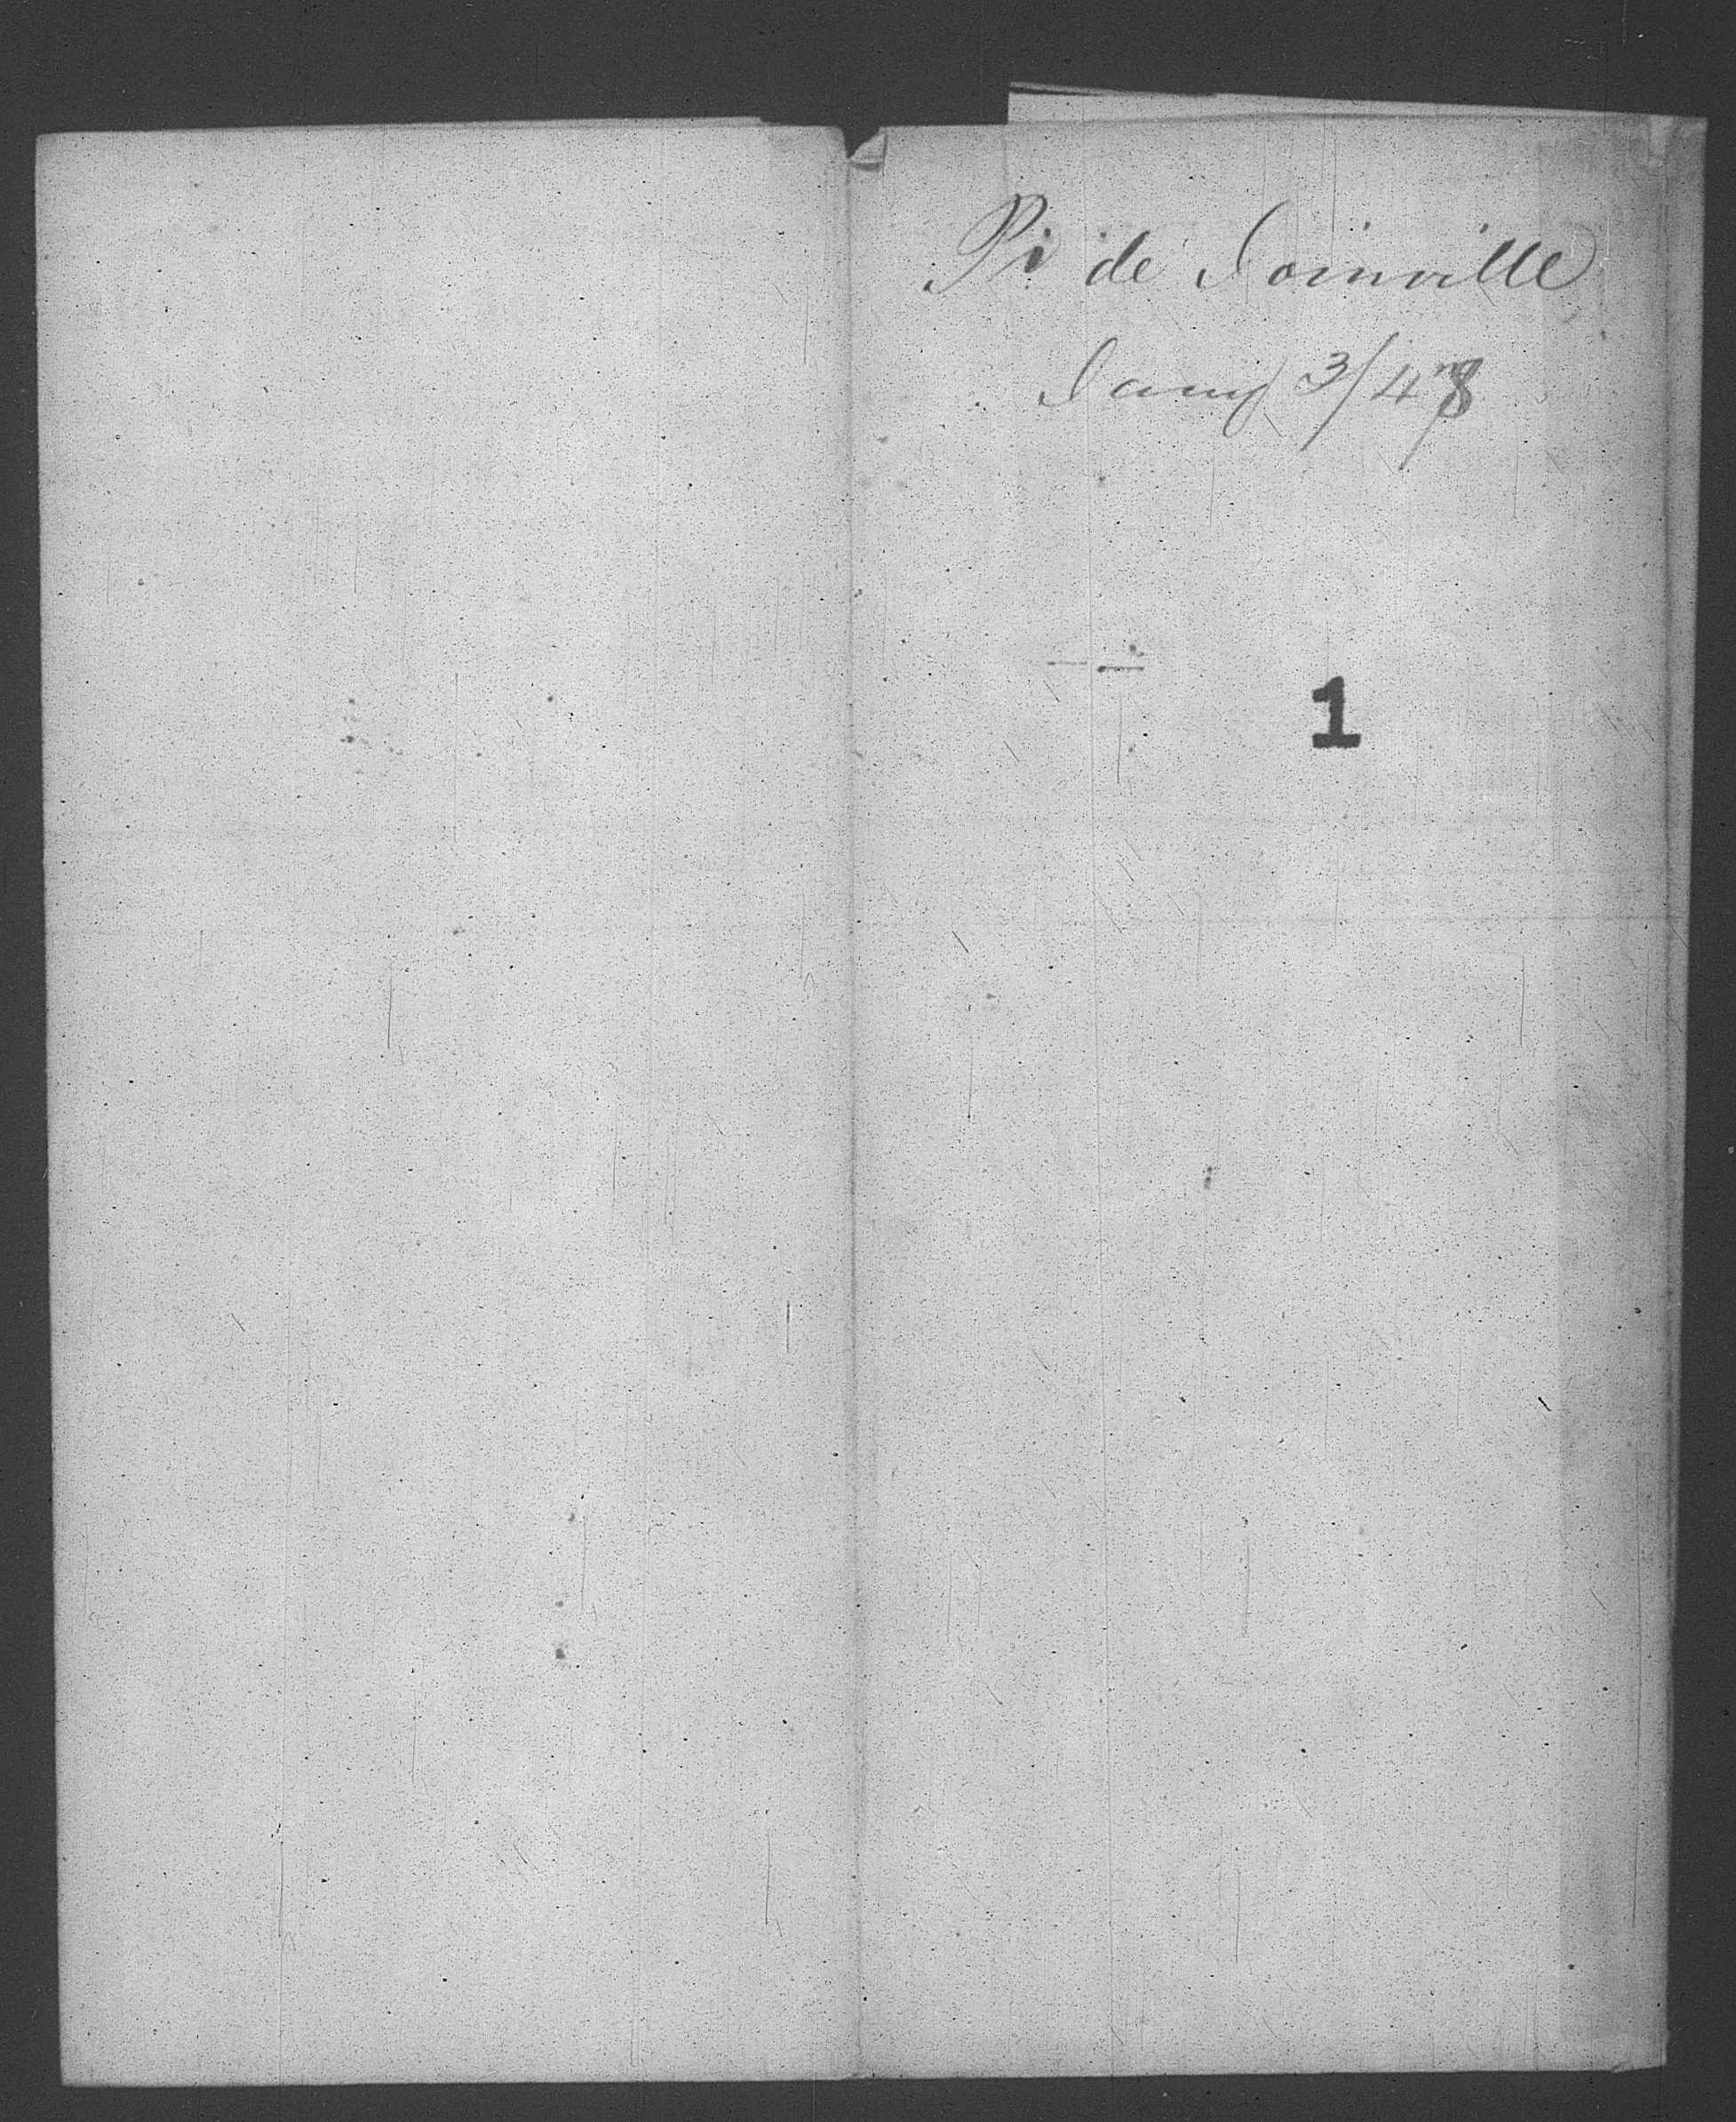 Pr de Joinville
Jany 3/48
1